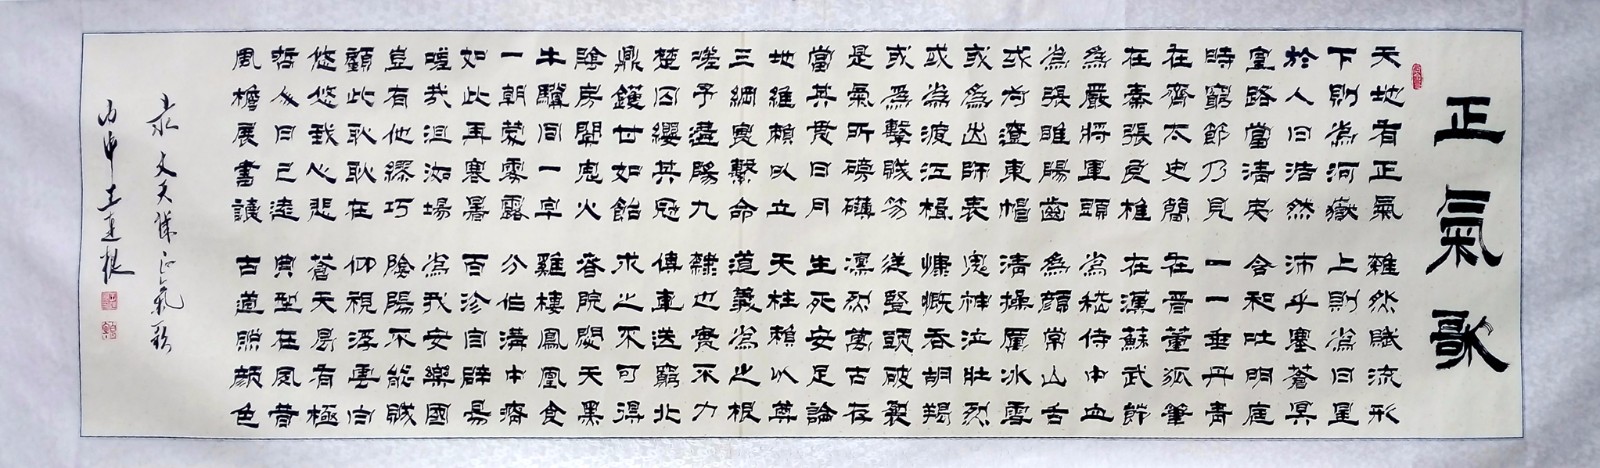 正氣歌
天地有正氣 雜然賦流形
下則為河嶽 上則為日星
於人曰浩然 沛乎塞蒼冥
皇路當清夷 含和吐明庭
時窮節乃見 一一垂丹青
在齊太史簡 在晉董狐筆
在秦張良椎 在漢蘇武節
為嚴將軍頭 為嵇侍中血
為張睢陽齒 為顏常山舌
或為遼東帽 清操厲冰雪
或為出師表 鬼神泣壯烈
或為渡江楫 慷慨吞胡羯
或為擊賊笏 逆豎頭破裂
是氣所磅礴 凜烈萬古存
當其貫日月 生死安足論
地維賴以立 天柱賴以尊
三綱實繫命 道義為之根
嗟予遘陽九 隸也實不力
楚囚纓其冠 傳車送窮北
鼎鑊甘如飴 求之不可得
陰房闃鬼火 春院閟天黑
牛驥同一皁 雞棲鳳凰食
一朝蒙霧露 分作溝中瘠
如此再寒暑 百沴自辟易
嗟哉沮洳場 為我安樂國
豈有他繆巧 陰陽不能賊
顧此耿耿在 仰視浮雲白
悠悠我心悲 蒼天曷有極
哲人日已遠 典型在夙昔
風檐展書讀 古道照顏色
录文天祥正氣歌
丙申王建根